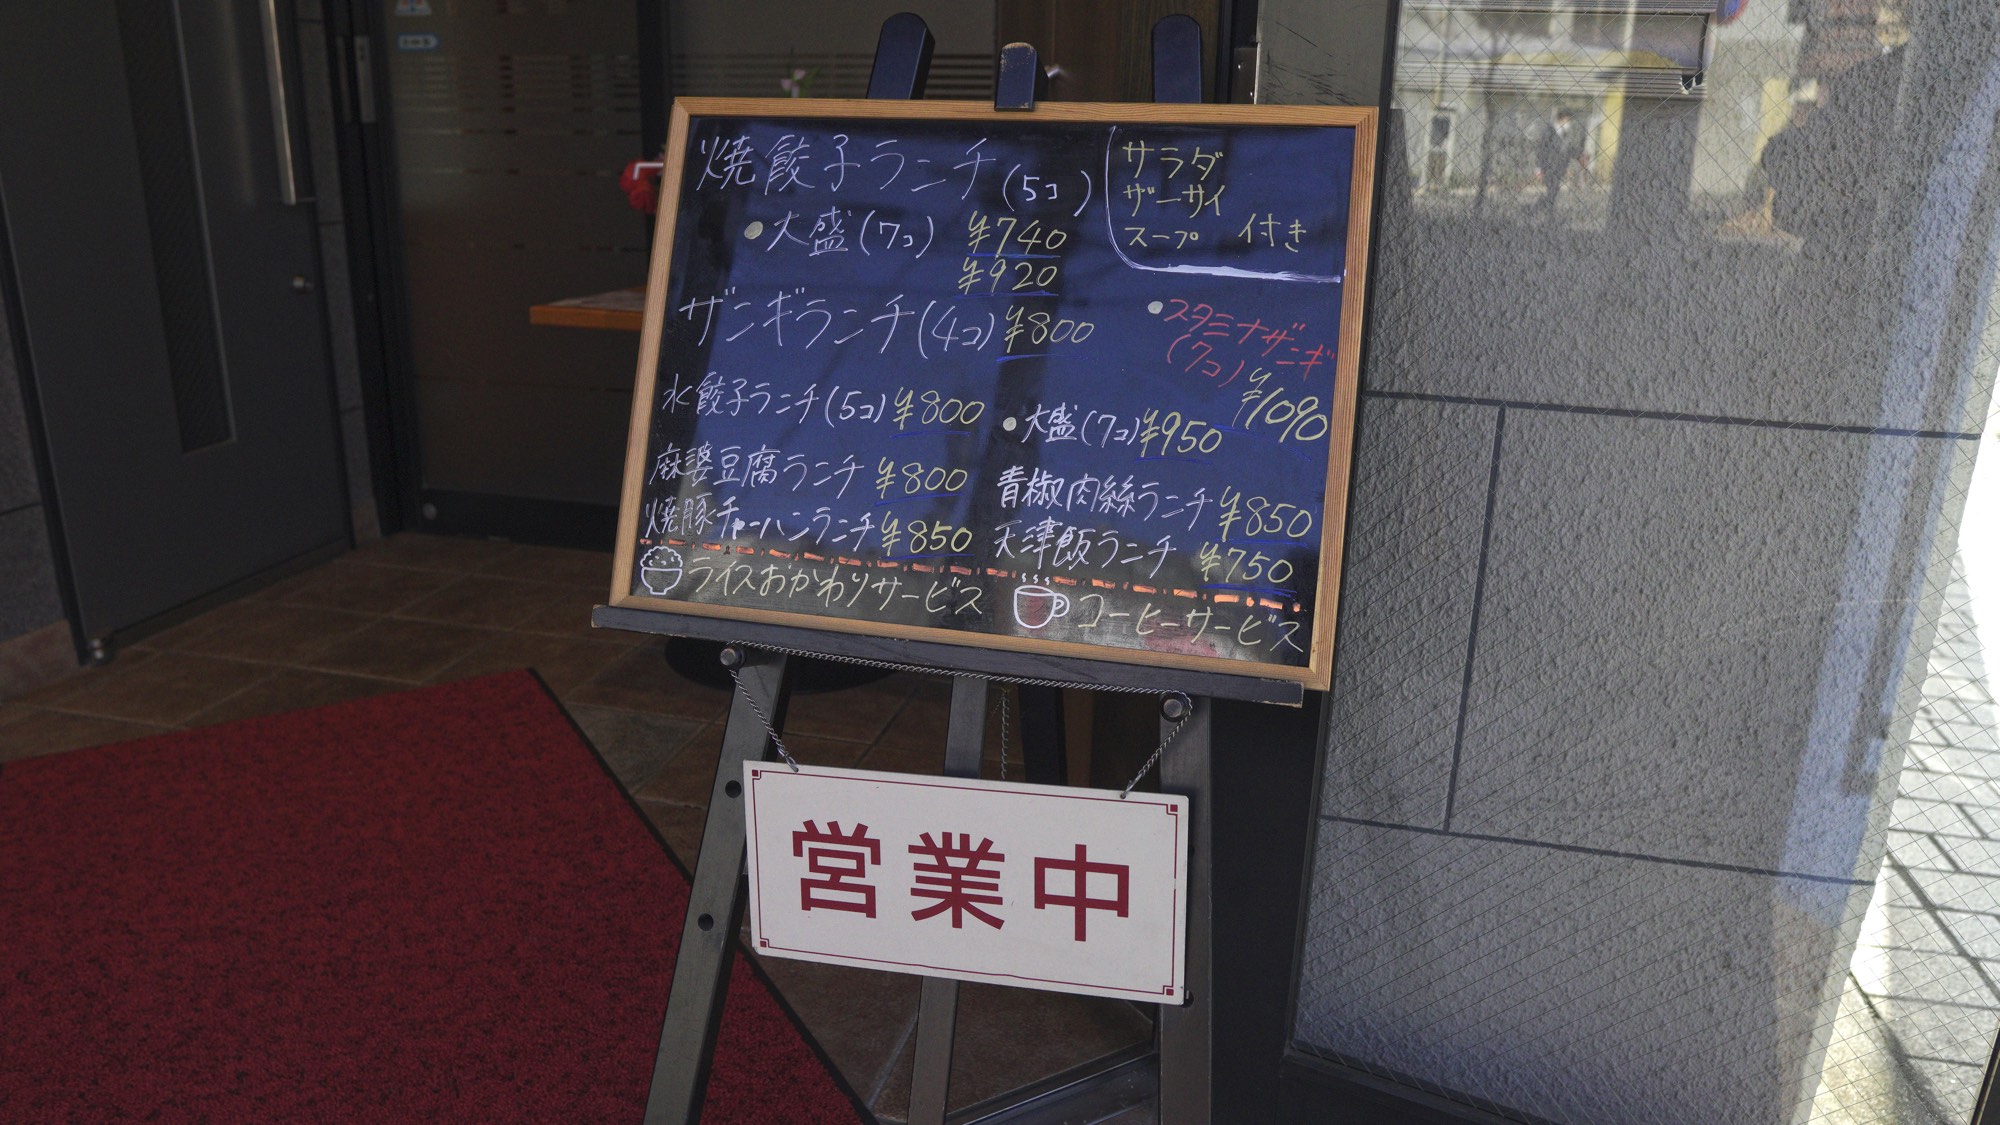 焼餃子ランチ(5コ)
・大盛(7コ) ¥740
¥920
サラダ
ザーサイ
スープ 付き
ザンギランチ(4コ) ¥800
・スタミナザンギ
(7コ)
¥1090
水餃子ランチ(5コ) ¥800
・大盛(7コ) ¥950
麻婆豆腐ランチ ¥800
青椒肉絲ランチ ¥850
焼豚チャーハンランチ ¥850
天津飯ランチ ¥750
ライスおかわりサービス
コーヒーサービス
営業中